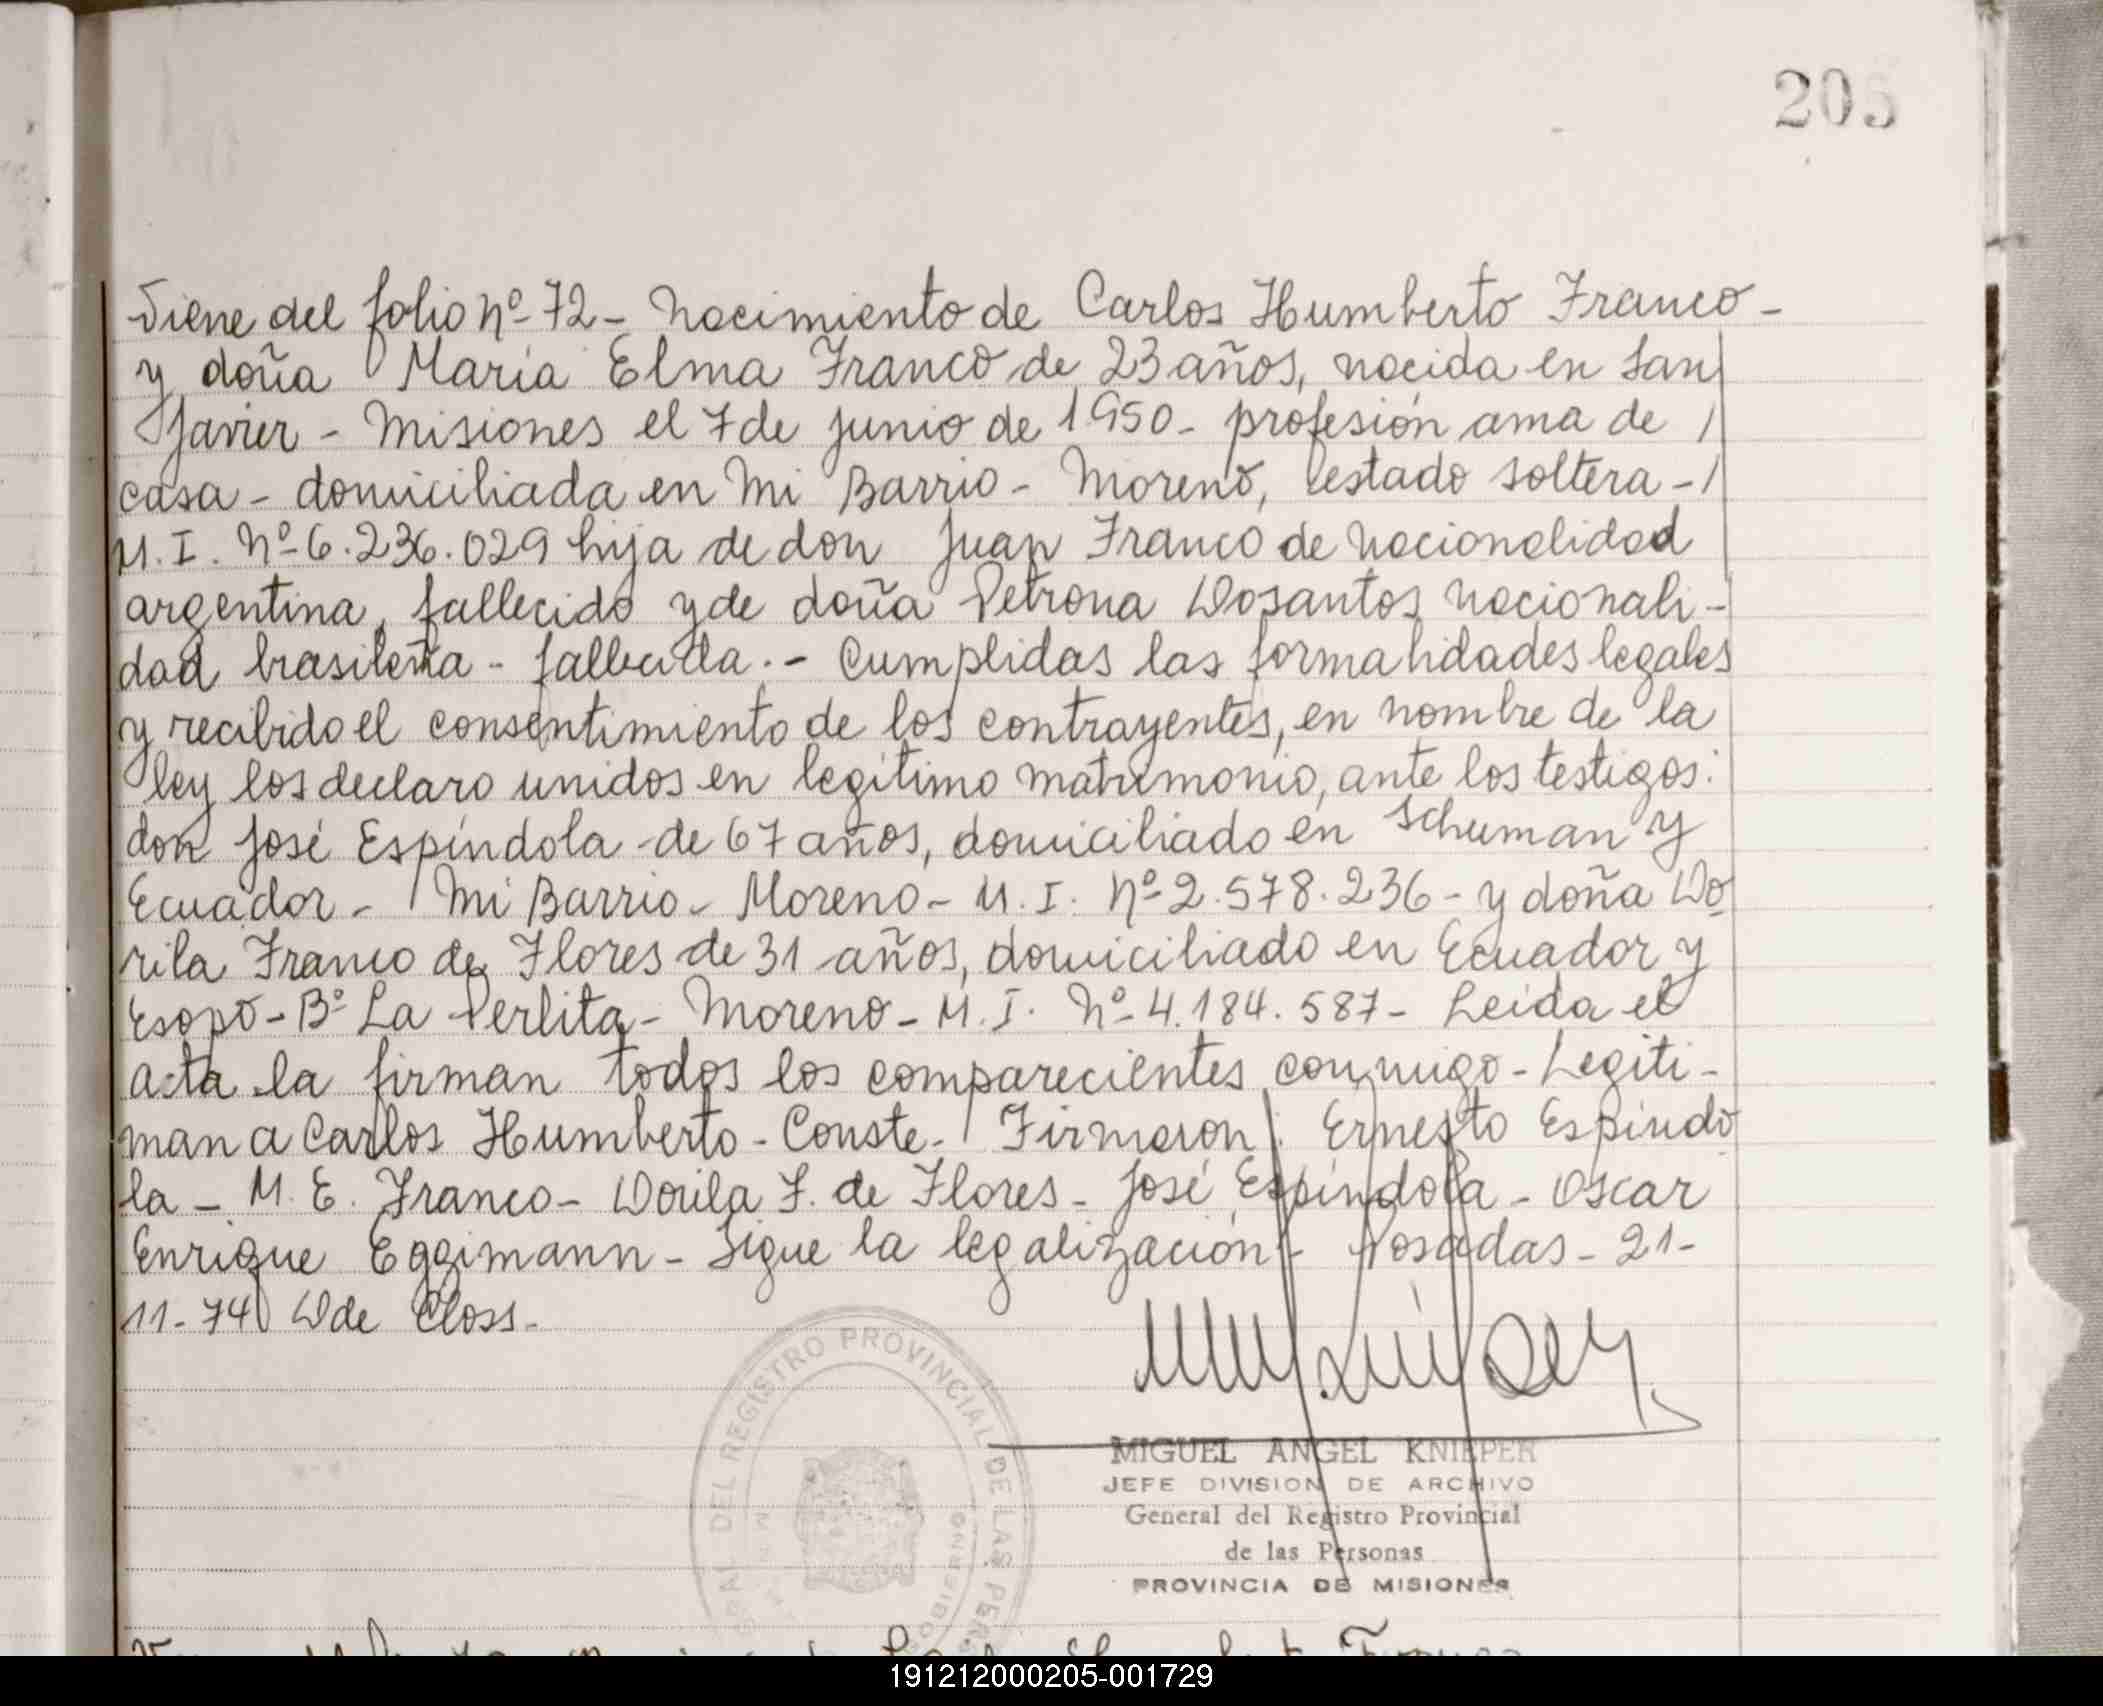 205
Viene del folio Nº 72 - Nacimiento de Carlos Humberto Franco -
y doña María Elma Franco de 23 años, nacida en San
Javier - Misiones el 7 de junio de 1950 - profesión ama de /
casa - domiciliada en Mi Barrio - Moreno, estado soltera - /
M. I. Nº 6.236.029 hija de don Juan Franco de nacionalidad
argentina, fallecido y de doña Petrona Dosantos nacionali-
dad brasileña - fallecida. - Cumplidas las formalidades legales
y recibido el consentimiento de los contrayentes, en nombre de la
ley los declaro unidos en legítimo matrimonio, ante los testigos:
don José Espíndola de 67 años, domiciliado en Schuman y
Ecuador - Mi Barrio - Moreno - M. I. Nº 2.578.236 - y doña Do
rila Franco de Flores de 31 años, domiciliado en Ecuador y
Esopo - Bº La Perlita - Moreno - M. I. Nº 4.184.587 - Leida el
acta la firman todos los comparecientes conmigo - Legiti-
man a Carlos Humberto - Conste - Firmaron: Ernesto Espíndo
la - M. E. Franco - Dorila F. de Flores - José Espíndola - Oscar
Enrique Eggimann - Sigue la legalización - Posadas - 21 -
11 - 74 D de Closs -
DEL REGISTRO PROVINCIAL DE LAS PERS
MIGUEL ANGEL KNIEPER
JEFE DIVISION DE ARCHIVO
General del Registro Provincial
de las Personas
PROVINCIA DE MISIONES
191212000205-001729